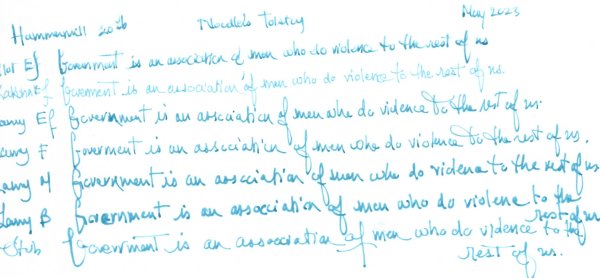 Hammermill 20 lb Noodler's Tolstoy May 2023
Pilot EF Government is an association of men who do violence to the rest of us
Government is an association of men who do violence to the rest of us.
Lamy EF Government is an association of men who do violence to the rest of us.
Lamy F Government is an association of men who do violence to the rest of us.
Lamy M Government is an association of men who do violence to the rest of us
Lamy B Government is an association of men who do violence to the
rest of us
Stub Government is an association of men who do violence to the
rest of us.